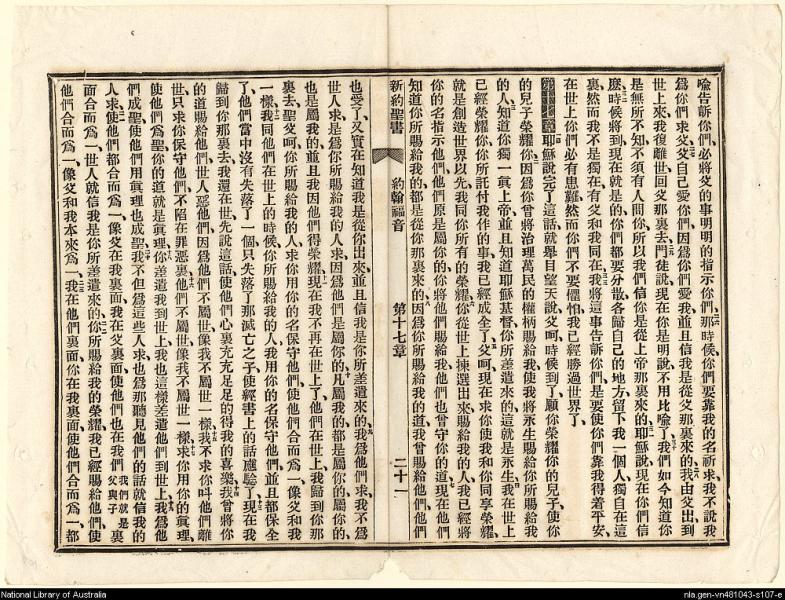 喩告訴你們、必將父的事明明的指示你們、那時候、你們要靠我的名祈求、我不說我
爲你們求父、父自己愛你們、因爲你們愛我、並且信我是從父那裏來的、我由父出到
世上來、我復離世回父那裏去、門徒說、現在你是明說、不用比喩了、我們如今知道你
是無所不知、不須有人問你、所以我們信你是從上帝那裏來的、耶穌說、現在你們信
麽、時候將到、現在就是的、你們都要分散、各歸自己的地方、留下我一個人、獨自在這
裏、然而我不是獨在、有父和我同在、我將這事告訴你們、是要使你們靠我得着平安、
在世上你們必有患難、然而你們不要懼怕、我已經勝過世界了、
第十七章 耶穌說完了這話、就舉目望天說、父呵、時候到了、願你榮耀你的兒子、使你
的兒子榮耀你、因爲你曾將治理萬民的權柄賜給我、使我將永生賜給你所賜給我
的人、知道你獨一眞上帝、並且知道耶穌基督你所差遣來的、這就是永生、我在世上
已經榮耀你、你所託付我作的事、我已經成全了、父呵、現在求你使我和你同享榮耀、
就是創造世界以先、我同你所有的榮耀、你從世上揀選出來賜給我的人、我已經將
你的名指示他們、他們原是屬你的、你將他們賜給我、他們也曾守你的道、現在他們
知道你所賜給我的、都是從你那裏來的、因爲你所賜給我的道、我曾賜給他們、他們
新約聖書 約翰福音 第十七章 二十一
也受了、又實在知道我是從你出來、並且信我是你所差遣來的、我爲他們求、我不爲
世人求、是爲你所賜給我的人求、因爲他們是屬你的、凡屬我的都是屬你的、屬你的
也是屬我的、並且我因他們得榮耀、現在我不再在世上了、他們在世上、我歸到你那
裏去、聖父呵、你所賜給我的人、求你用你的名保守他們、使他們合而爲一、像父和我
一樣、我同他們在世上的時候、你所賜給我的人、我用你的名保守他們、並且都保全
了、他們當中沒有失落了一個、只失落了那滅亡之子、使經書上的話應驗了、現在我
歸到你那裏去、我還在世先說這話、使他們心裏充充足足的得我的喜樂、我曾將你
的道賜給他們、世人惡他們、因爲他們不屬世、像我不屬世一樣、我不求你叫他們離
世、只求你保守他們、不陷在罪惡裏、他們不屬世、像我不屬世一樣、求你用你的眞理、
使他們爲聖、你的道就是眞理、你差遣我到世上、我也這樣差遣他們到世上、我爲他
們成聖、使他們用眞理也成聖、我不但爲這些人求、也爲那聽見他們的話就信我的
人求、使他們都合而爲一、像父在我裏面、我在父裏面、使他們也在我們父與子我們就是裏
面合而爲一、世人就信我是你所差遣來的、你所賜給我的榮耀、我已經賜給他們、使
他們合而爲一、像父和我本來爲一、我在他們裏面、你在我裏面、使他們合而爲一、都
National Library of Australia
nla.gen-vn481043-s107-e